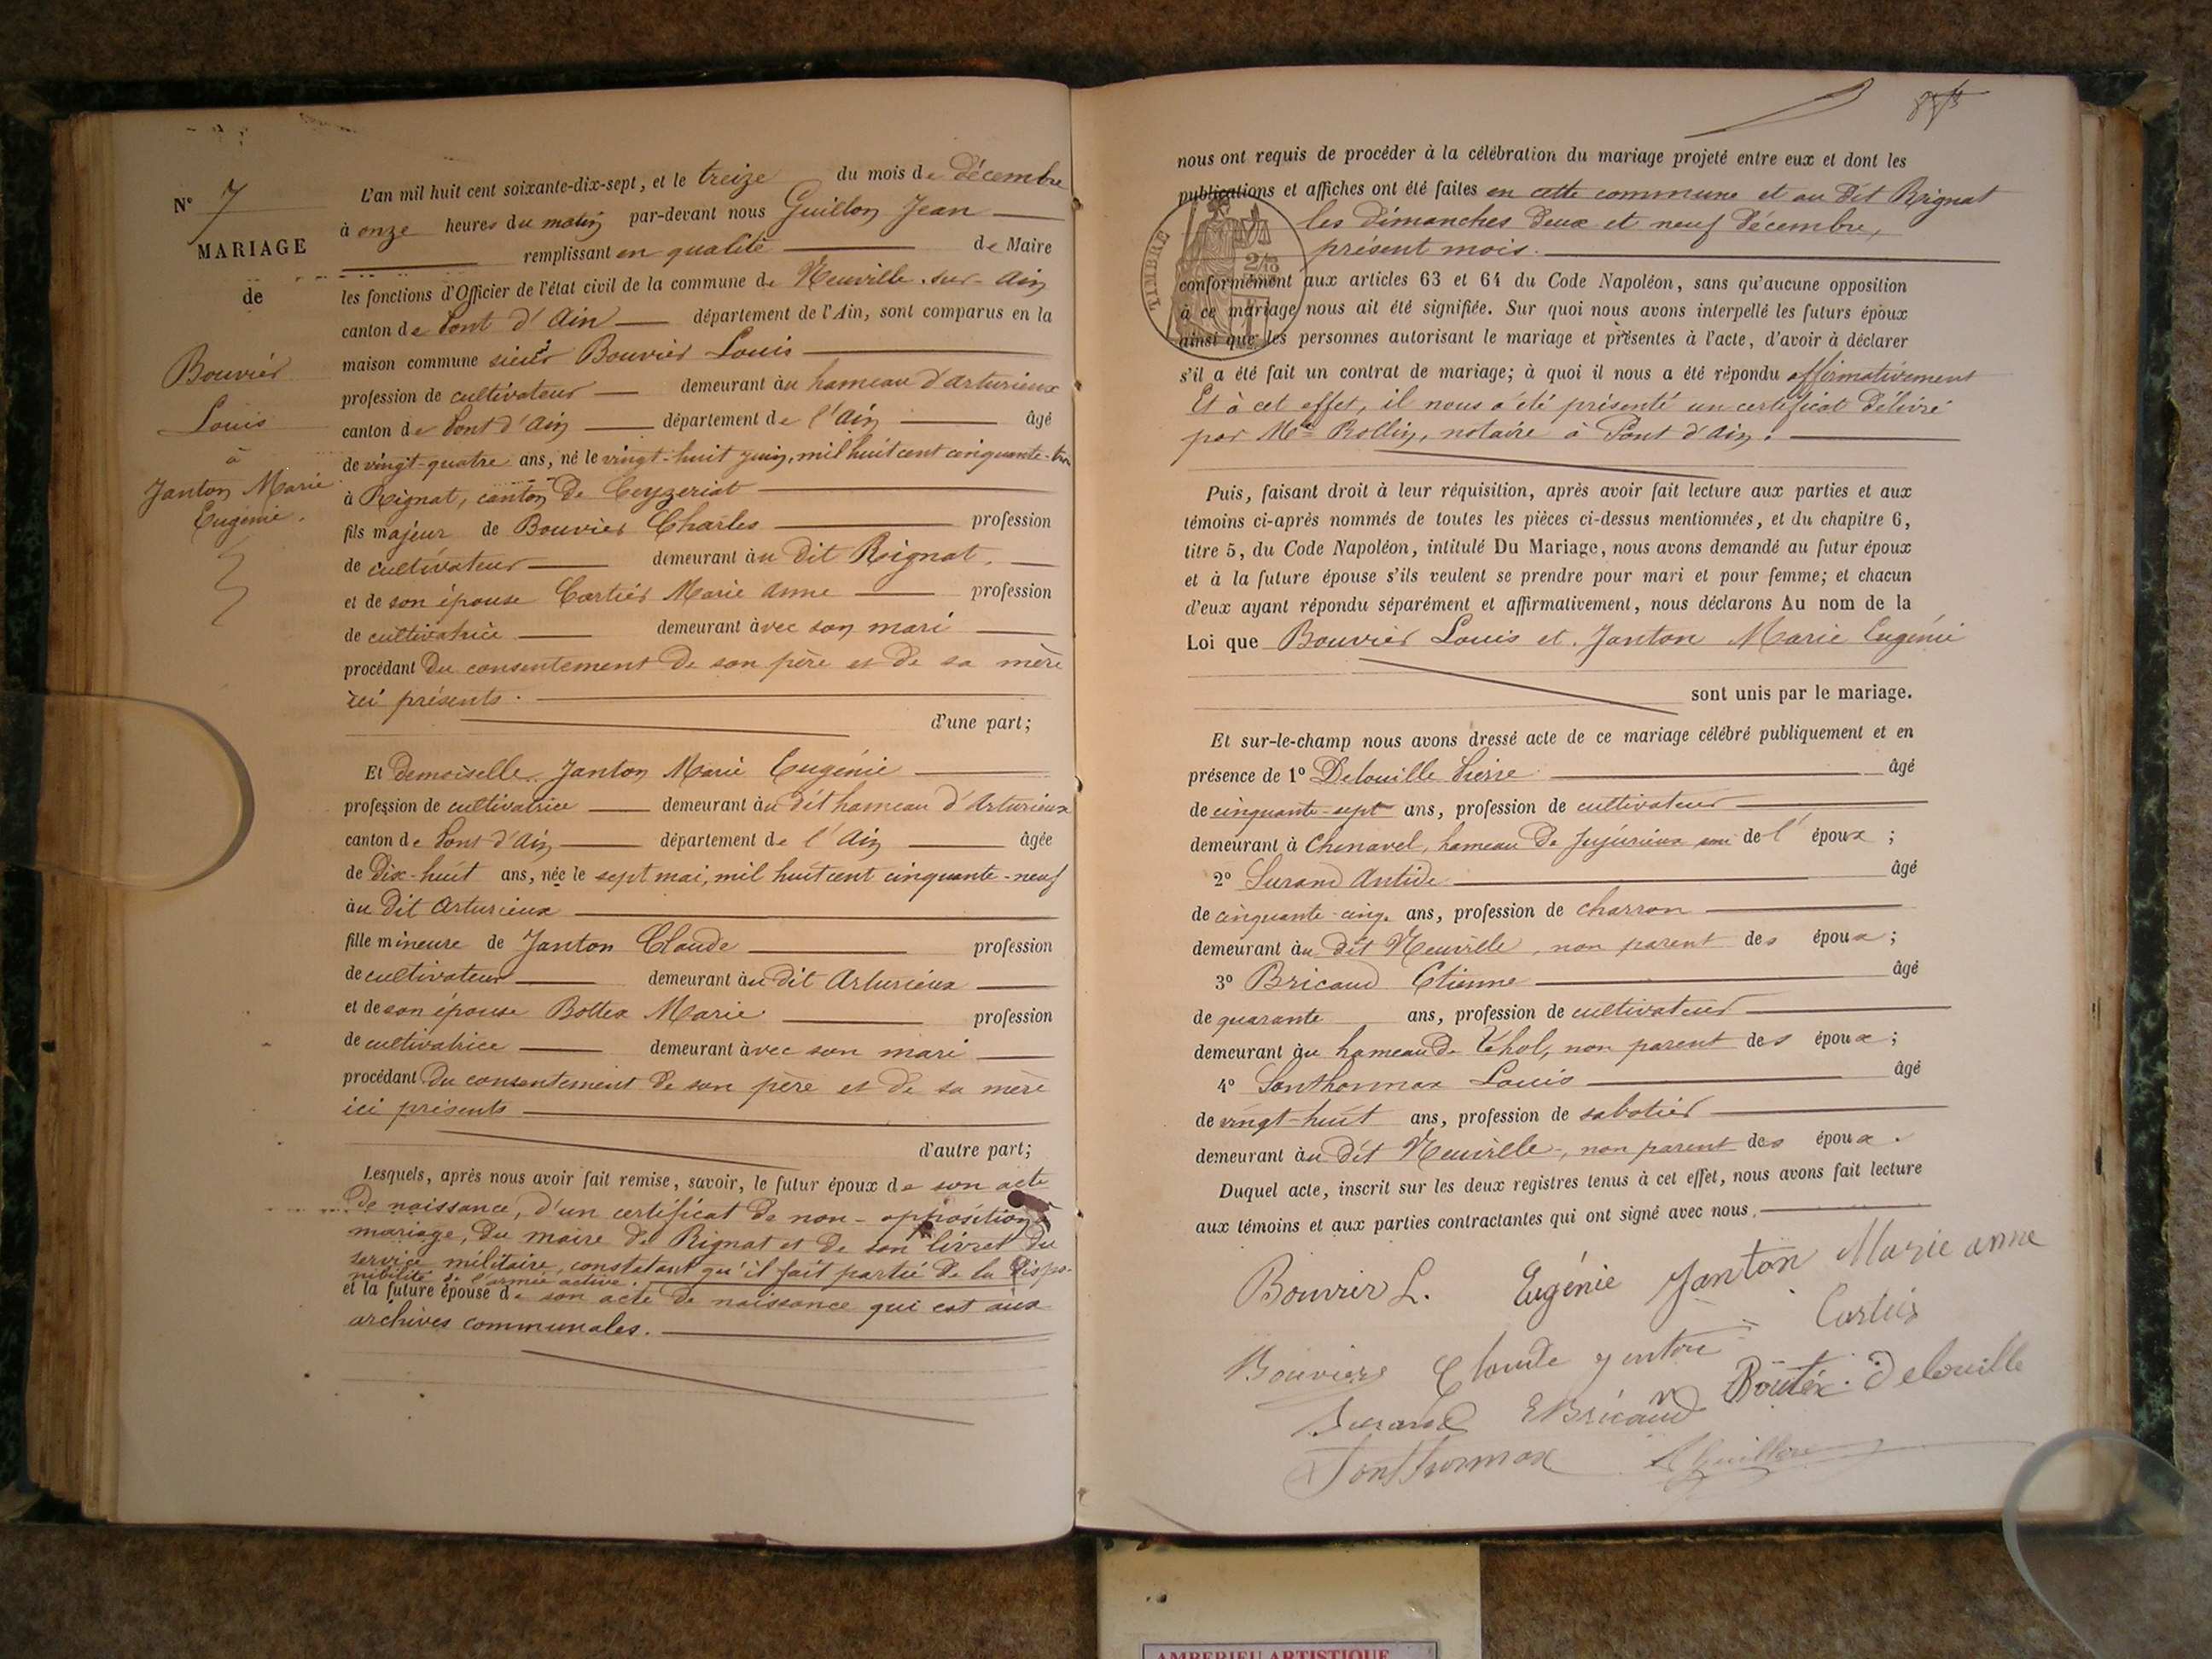 N° 7
MARIAGE
de
Bouvier
Louis
à
Janton Marie
Eugénie.
L'an mil huit cent soixante-dix-sept, et le treize du mois de décembre
à onze heures du matin par-devant nous Guillon Jean
remplissant en qualité de Maire
les fonctions d'Officier de l'état civil de la commune de Neuville-sur-Ain
canton de Pont d'Ain département de l'Ain, sont comparus en la
maison commune sieur Bouvier Louis
profession de cultivateur demeurant au hameau d'Arturieux
canton de Pont d'Ain département de l'Ain âgé
de vingt-quatre ans, né le vingt-huit juin, mil huit cent cinquante-trois
à Rignat, canton de Ceyzeriat
fils majeur de Bouvier Charles profession
de cultivateur demeurant au dit Rignat.
et de son épouse Cartier Marie Anne profession
de cultivatrice demeurant avec son mari
procédant du consentement de son père et de sa mère
ici présents.
d'une part;
Et demoiselle Janton Marie Eugénie
profession de cultivatrice demeurant au dit hameau d'Arturieux
canton de Pont d'Ain département de l'Ain âgée
de dix-huit ans, née le sept mai, mil huit cent cinquante-neuf
au dit Arturieux
fille mineure de Janton Claude profession
de cultivateur demeurant au dit Arturieux
et de son épouse Bottex Marie profession
de cultivatrice demeurant avec son mari
procédant du consentement de son père et de sa mère
ici présents
d'autre part;
Lesquels, après nous avoir fait remise, savoir, le futur époux de son acte
de naissance, d'un certificat de non-opposition à
mariage, du maire de Rignat et de son livret du
service militaire, constatant qu'il fait partie de la dispo-
nibilité de l'armée active.
et la future épouse de son acte de naissance qui est aux
archives communales.
nous ont requis de procéder à la célébration du mariage projeté entre eux et dont les
publications et affiches ont été faites en cette commune et au dit Rignat
les dimanches deux et neuf décembre,
présent mois.
TIMBRE
conformément aux articles 63 et 64 du Code Napoléon, sans qu'aucune opposition
à ce mariage nous ait été signifiée. Sur quoi nous avons interpellé les futurs époux
ainsi que les personnes autorisant le mariage et présentes à l'acte, d'avoir à déclarer
s'il a été fait un contrat de mariage; à quoi il nous a été répondu affirmativement
Et à cet effet, il nous a été présenté un certificat délivré
par Me Rollin, notaire à Pont d'Ain.
Puis, faisant droit à leur réquisition, après avoir fait lecture aux parties et aux
témoins ci-après nommés de toutes les pièces ci-dessus mentionnées, et du chapitre 6,
titre 5, du Code Napoléon, intitulé Du Mariage, nous avons demandé au futur époux
et à la future épouse s'ils veulent se prendre pour mari et pour femme; et chacun
d'eux ayant répondu séparément et affirmativement, nous déclarons Au nom de la
Loi que Bouvier Louis et Janton Marie Eugénie
sont unis par le mariage.
Et sur-le-champ nous avons dressé acte de ce mariage célébré publiquement et en
présence de 1° Delouille Pierre âgé
de cinquante-sept ans, profession de cultivateur
demeurant à Chenavel, hameau de Jujurieux ami de l'époux ;
2° Surand Antide âgé
de cinquante-cinq ans, profession de charron
demeurant au dit Neuville, non parent des époux ;
3° Bricaud Etienne âgé
de quarante ans, profession de cultivateur
demeurant au hameau de Thol, non parent des époux ;
4° Sonthonnax Louis âgé
de vingt-huit ans, profession de sabotier
demeurant au dit Neuville, non parent des époux.
Duquel acte, inscrit sur les deux registres tenus à cet effet, nous avons fait lecture
aux témoins et aux parties contractantes qui ont signé avec nous.
Bouvier L. Eugénie Janton Marie anne
Cartier
Bouvier Claude Delouille
Surand E Bricaud
Sonthonnax Guillon
AMBERIEU ARTISTIQUE